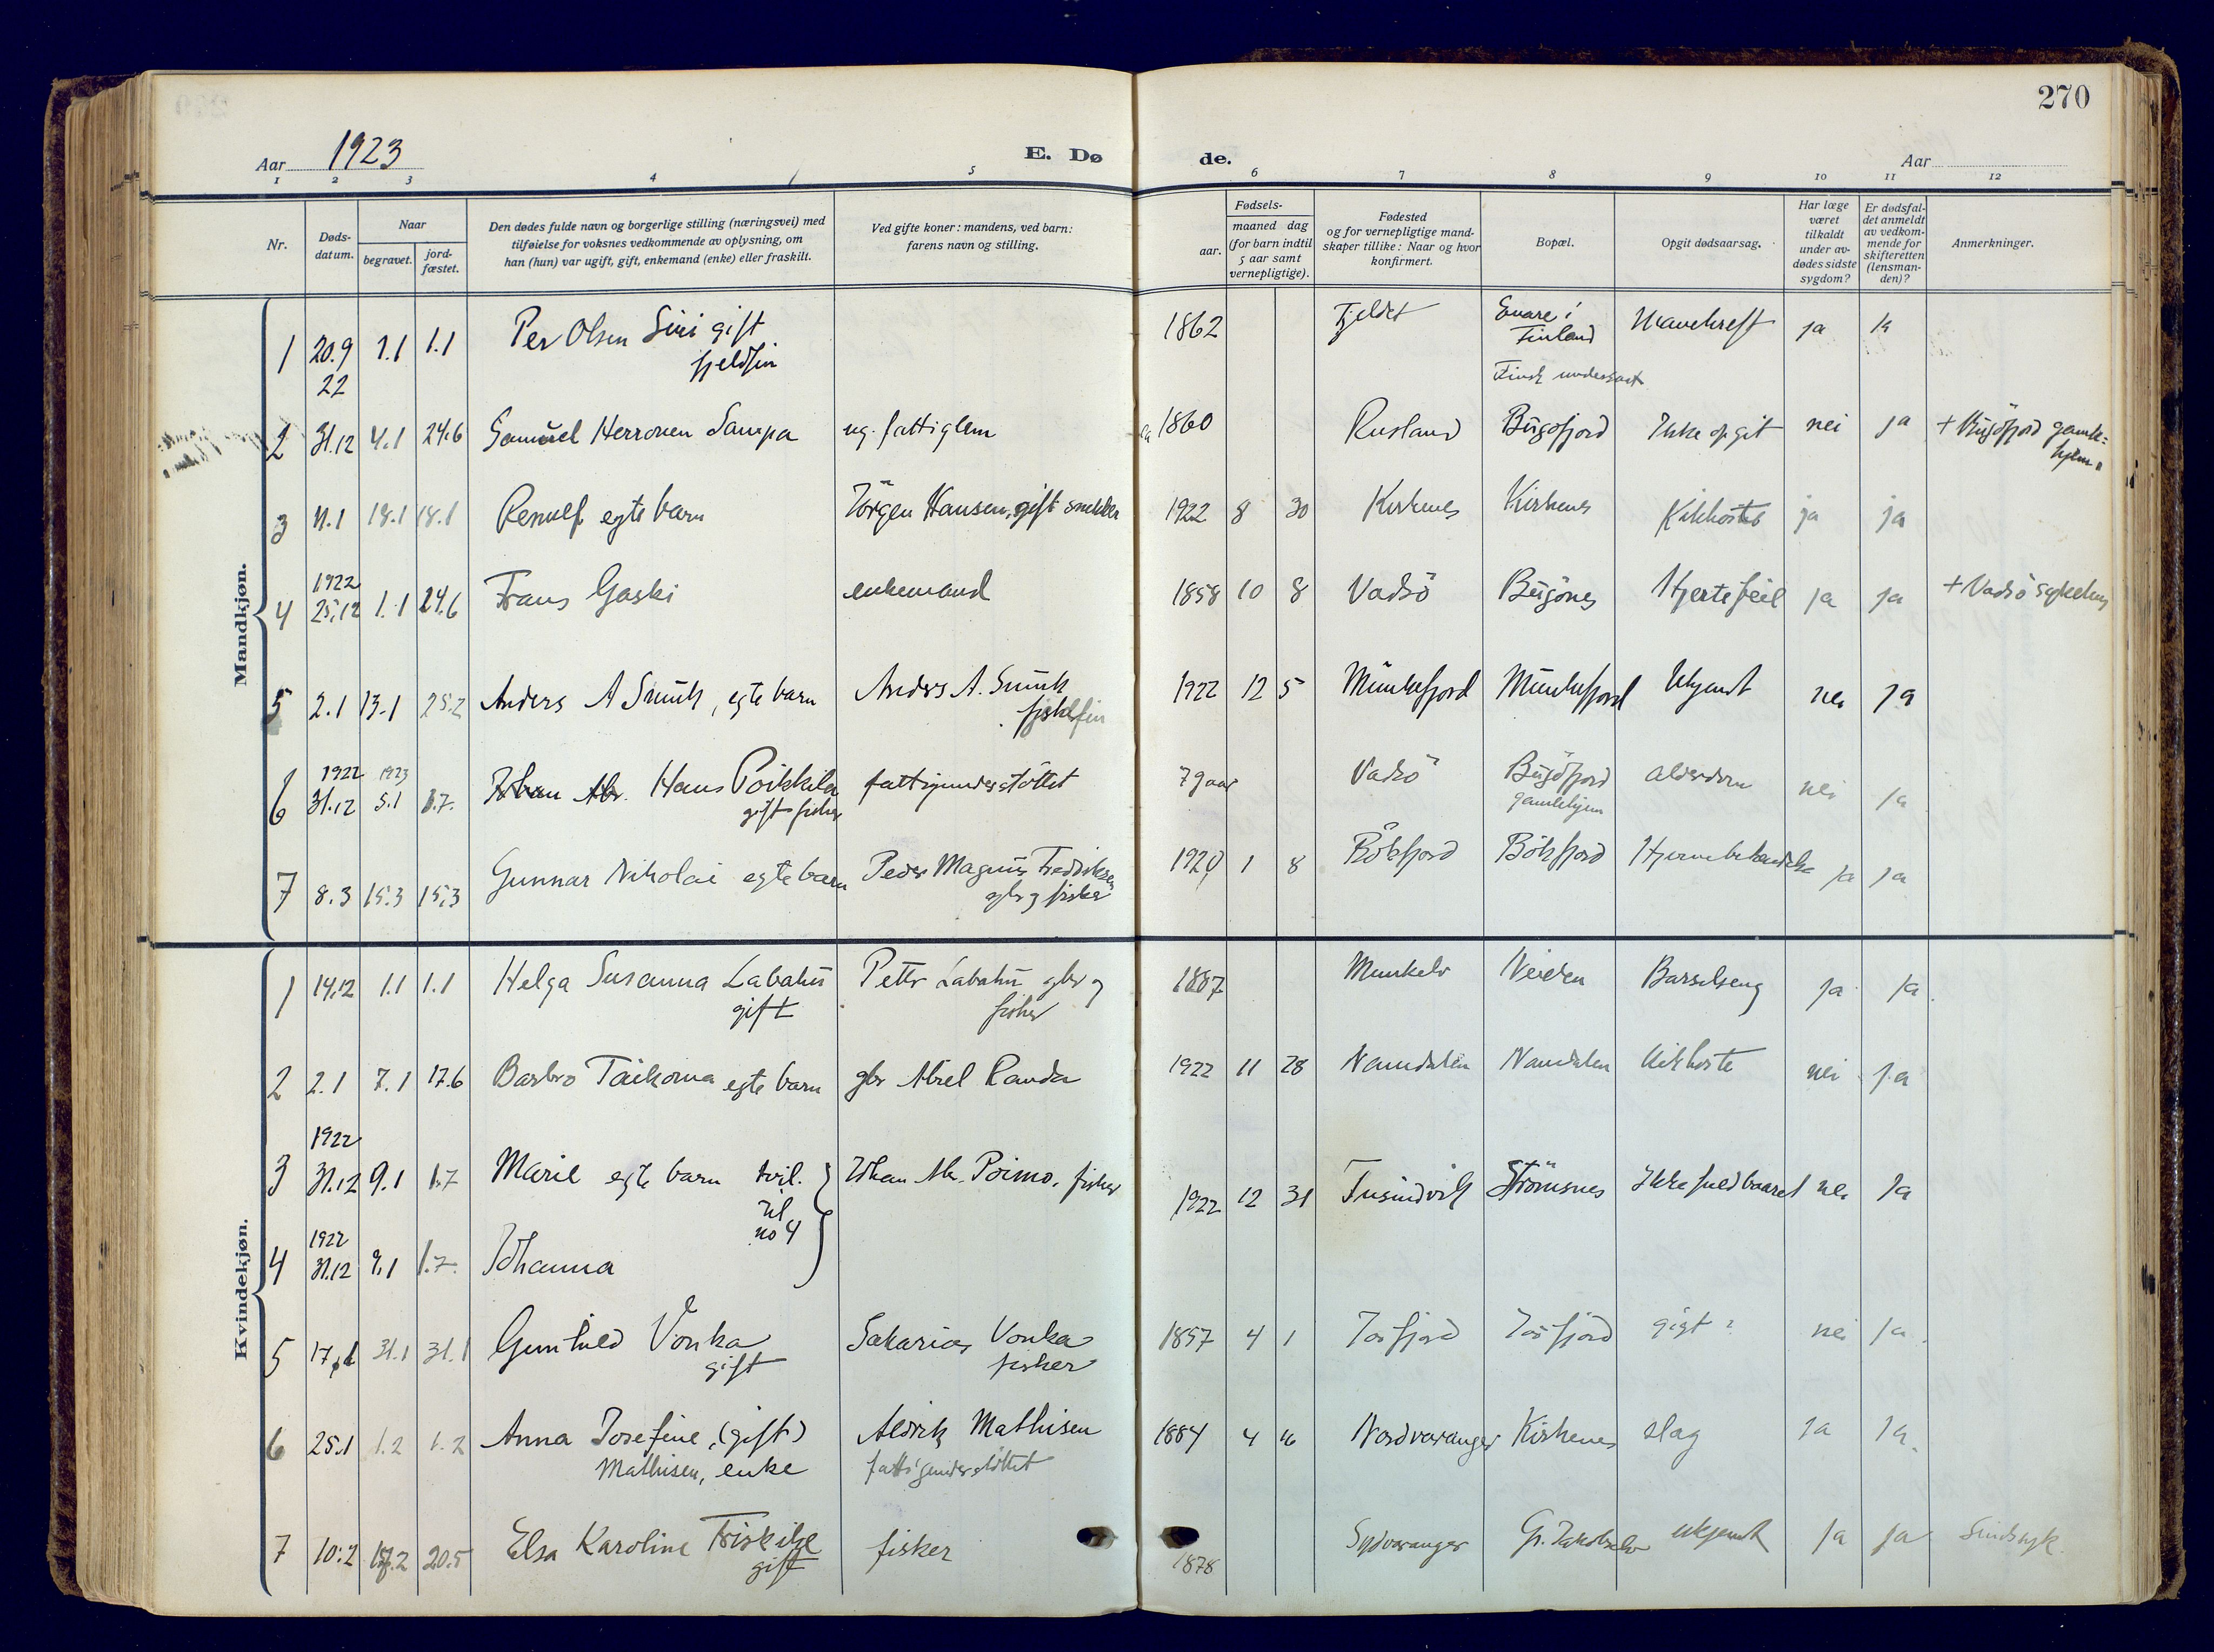 270
Aar 1923
E. Dø
de.
Aar
1 2 3 4 5 6 7 8 9 10 11 12
Nr.
Døds-
datum.
Naar
begravet.
jord-
fæstet.
Den dødes fulde navn og borgerlige stilling (næringsvei) med
tilføielse for voksnes vedkommende av oplysning, om
han (hun) var ugift, gift, enkemand (enke) eller fraskilt.
Ved gifte koner: mandens, ved barn:
farens navn og stilling.
Fødsels-
aar.
maaned dag
(for barn indtil
5 aar samt
vernepligtige).
Fødested
og for vernepligtige mand-
skaper tillike: Naar og hvor
konfirmert.
Bopæl.
Opgit dødsaarsag.
Har læge
været
tilkaldt
under av-
dødes sidste
sygdom?
Er dødsfal-
det anmeldt
av vedkom-
mende for
skifteretten
(lensman-
den)?
Anmerkninger.
Mandkjøn.
1 20.9 1.1 1.1 Per Olsen Siri gift 1862 Fjeldet Enare i ja ja
22 fjeldfin Finland
Finsk undersaat
2 31.12 4.1 24.6 Samuel Herronen Sampa ug. fattiglem ca 1860 Rusland Bugøfjord Ikke opgit nei ja + Bugöfjord gamle=
hjem.
3 11.1 18.1 18.1 egte barn Jörgen Hansen, gift snekker 1922 8 30 Kirkenes Kirkenes Kikhoste ja ja
1922
4 25.12 1.1 24.6 Frans Gaski enkemand 1858 10 8 Vadsö Bugönes Hjertefeil ja ja + Vadsö sykehus
5 2.1 13.1 25.2 Anders A Smuk, egte barn Anders A. Smuk 1922 12 5 Munkefjord Munkefjord Ukjendt nei ja
1922 1923
6 31.12 5.1 1.7. Johan Hans Poikkila fattigunderstöttet 79 aar Vadsö Bugöfjord Alderdom nei ja
gift fisker gamlehjem
7 8.3 15.3 15.3 Gunnar Nikolai egte barn Peder Magnus Fredriksen 1920 1 8 Bökfjord Bökfjord ja ja
gbr og fisker
Kvindekjøn.
1 14.12 1.1 1.1 Helga Susanna Labahü Petter Labahü gbr og 1887 Munkelv Neiden Barselseng ja ja
gift fisker
2 2.1 7.1 17.6 Barbro egte barn gbr Abel Randa 1922 11 28 Namdalen Namdalen Kikhoste nei ja
1922
3 31.12 9.1 1.7 Marie egte barn tvil. Johan Poimo, fisker 1922 12 31 Tusindvik Strömsnes Ikke fuldbaaret nei ja
til
no 4
1922
4 31.12 9.1 1.7. Johanna
5 17.1 31.1 31.1 Gunhild Vonka Sakarias Vonka 1857 4 1 gigt? nei ja
gift fisker
6 25.1 1.2 1.2 Anna Josefine, (gift) Aldrik Mathisen 1884 4 Nordvaranger Kirkenes slag ja ja
Mathisen, enke fattigunderstöttet
7 10.2 18.2 20.5 Elsa Karoline Friskilæ fisker 1878 Sydvaranger Gr. Jakobselv ukjendt ja ja Sindssyk.
gift